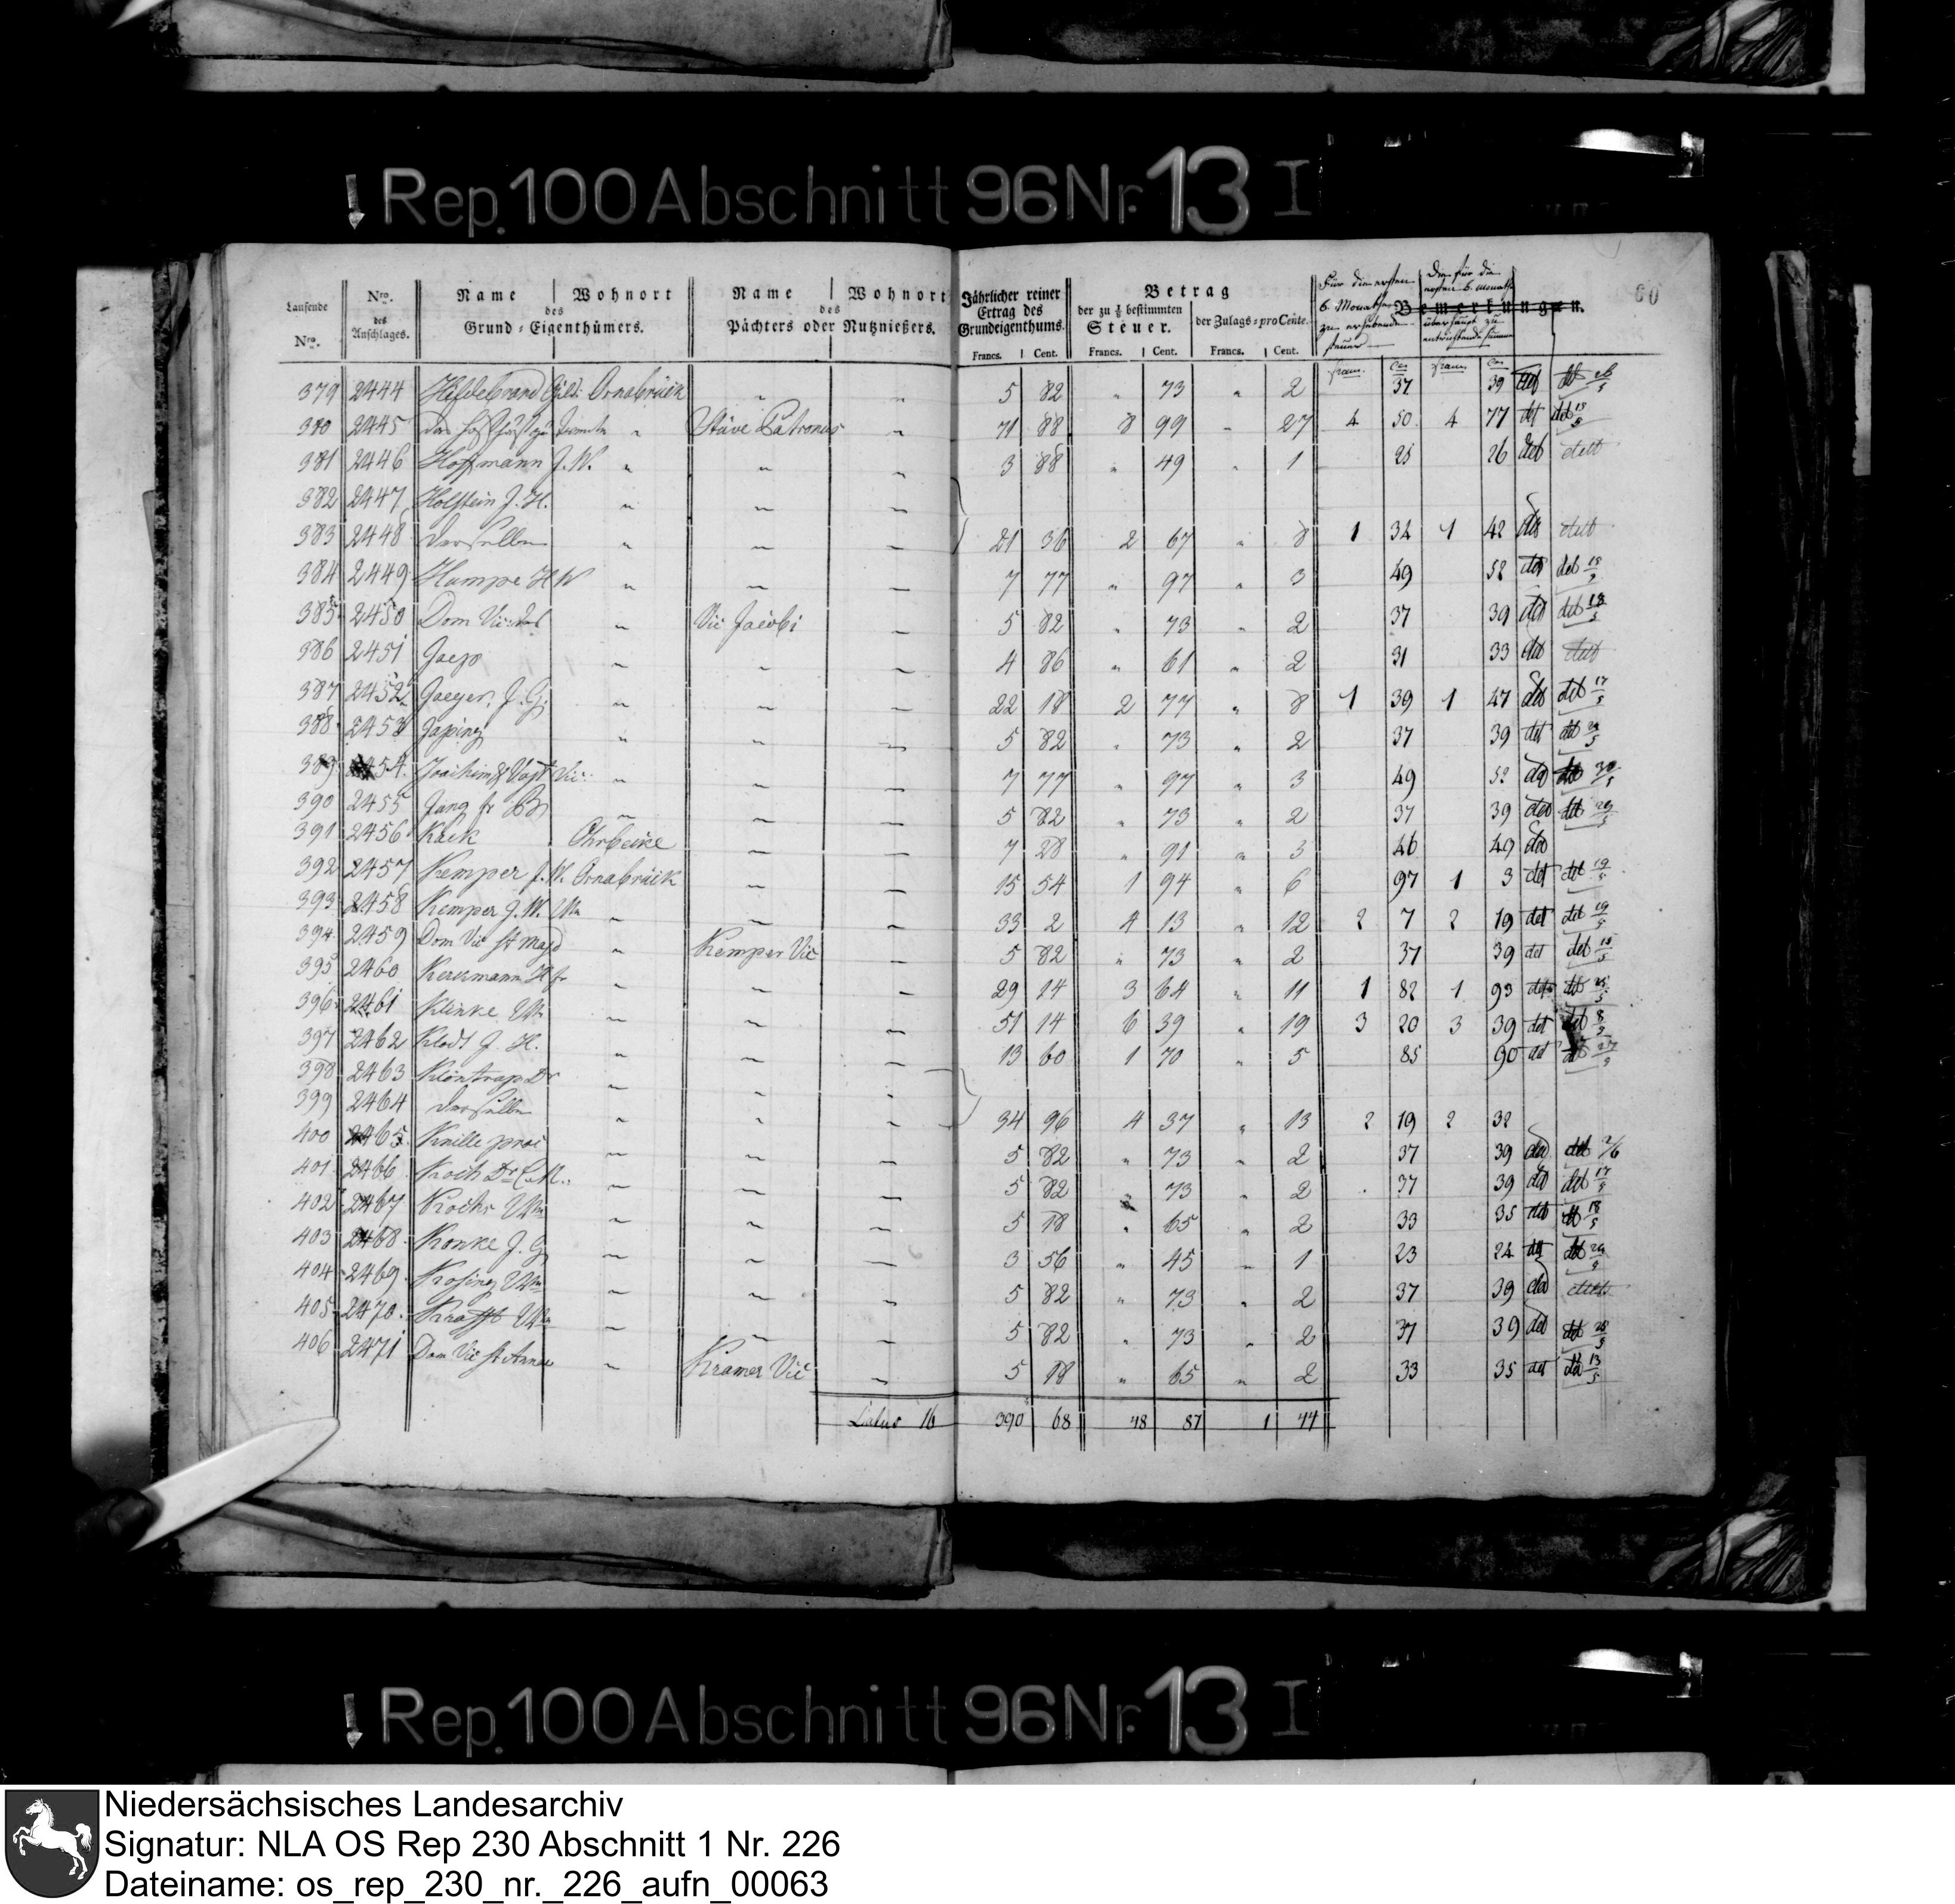 Rep. 100 Abschnitt 96 Nr. 13 I
60
Laufende Nro.
Nro. des Anschlages.
Name | Wohnort
des
Grund-Eigenthümers.
Name | Wohnort
des
Pächters oder Nutznießers.
Jährlicher reiner Ertrag des Grundeigenthums.
Francs. | Cent.
Betrag
der zu 1/8 bestimmten Steuer.
Francs. | Cent.
der Zulags-pro Cente.
Francs. | Cent.
Für die ersten 6. Monathe zu erhebende Steuer
Bemerkungen.
Die für die ersten 6. Monath überhaupt zu entrichtende Summe
379 2444 Hildebrand Osnabrück " " 5 82 " 73 " 2 37 39 det
380 2445 Stüve Patronus " 71 88 8 99 " 27 4 50 4 77 det det 19/5
381 2446 Hoffmann J. W. " " " 3 88 " 49 " 1 25 26 det dett
382 2447 Holstein J. H. " " "
383 2448 derselbe " " " 21 36 2 67 " 8 1 34 1 42 det dett
384 2449 Hampe H W " " " 7 77 " 97 " 3 49 52 det det
385 2450 Dom " Vic Jacobi " 5 82 " 73 " 2 37 39 det det 18/5
386 2451 Jaep " " " 4 86 " 61 " 2 31 33 det dett
387 2452 Jaeger, J. G. " " " 22 18 2 77 " 8 1 39 1 47 det det 17/5
388 2453 Japing " " " 5 82 " 73 " 2 37 39 det det
389 2454 Joachim & Vogt Vic: " " " 7 77 " 97 " 3 49 52 det det
390 2455 Jung fr " " " 5 82 " 73 " 2 37 39 det det 29/5
391 2456 Käck Ohrbecke " " 7 28 " 91 " 3 46 49 det
392 2457 Kemper J. W. Osnabrück " " 15 54 1 94 " 6 97 1 3 det det 19/5
393 2458 Kemper J. W. Wm " " " 33 2 4 13 " 12 2 7 2 19 det det 19/5
394 2459 Dom Vic St Magd " Kemper Vic 5 82 " 73 " 2 37 39 det det 18/5
395 2460 " " " 29 14 3 64 " 11 1 82 1 93 det det 25/5
396 2461 Klinke Wm " " " 51 14 6 39 " 19 3 20 3 39 det det
397 2462 Klodt J. H. " " " 13 60 1 70 " 5 85 90 det det
398 2463 Klöntrup Dr " " "
399 2464 derselbe " " " 34 96 4 37 " 13 2 19 2 32
400 2465 Knille proc " " " 5 82 " 73 " 2 37 39 det det 2/6
401 2466 Koch Dr " " " 5 82 " 73 " 2 37 39 det det 17/5
402 2467 Kochs Wm " " " 5 18 " 65 " 2 33 35 det det 18/5
403 2468 Konke J. G " " " 3 56 " 45 " 1 23 24 det det
404 2469 Kosing Wm " " " 5 82 " 73 " 2 37 39 det dett
405 2470 Krafft Wm " " " 5 82 " 73 " 2 37 39 det det 28/5
406 2471 Dom Vic St Annae " Kramer Vic " 5 18 " 65 " 2 33 35 det det 13/5
Latus 16 390 68 48 87 1 44
Rep. 100 Abschnitt 96 Nr. 13 I
Niedersächsisches Landesarchiv
Signatur: NLA OS Rep 230 Abschnitt 1 Nr. 226
Dateiname: os_rep_230_nr._226_aufn_00063